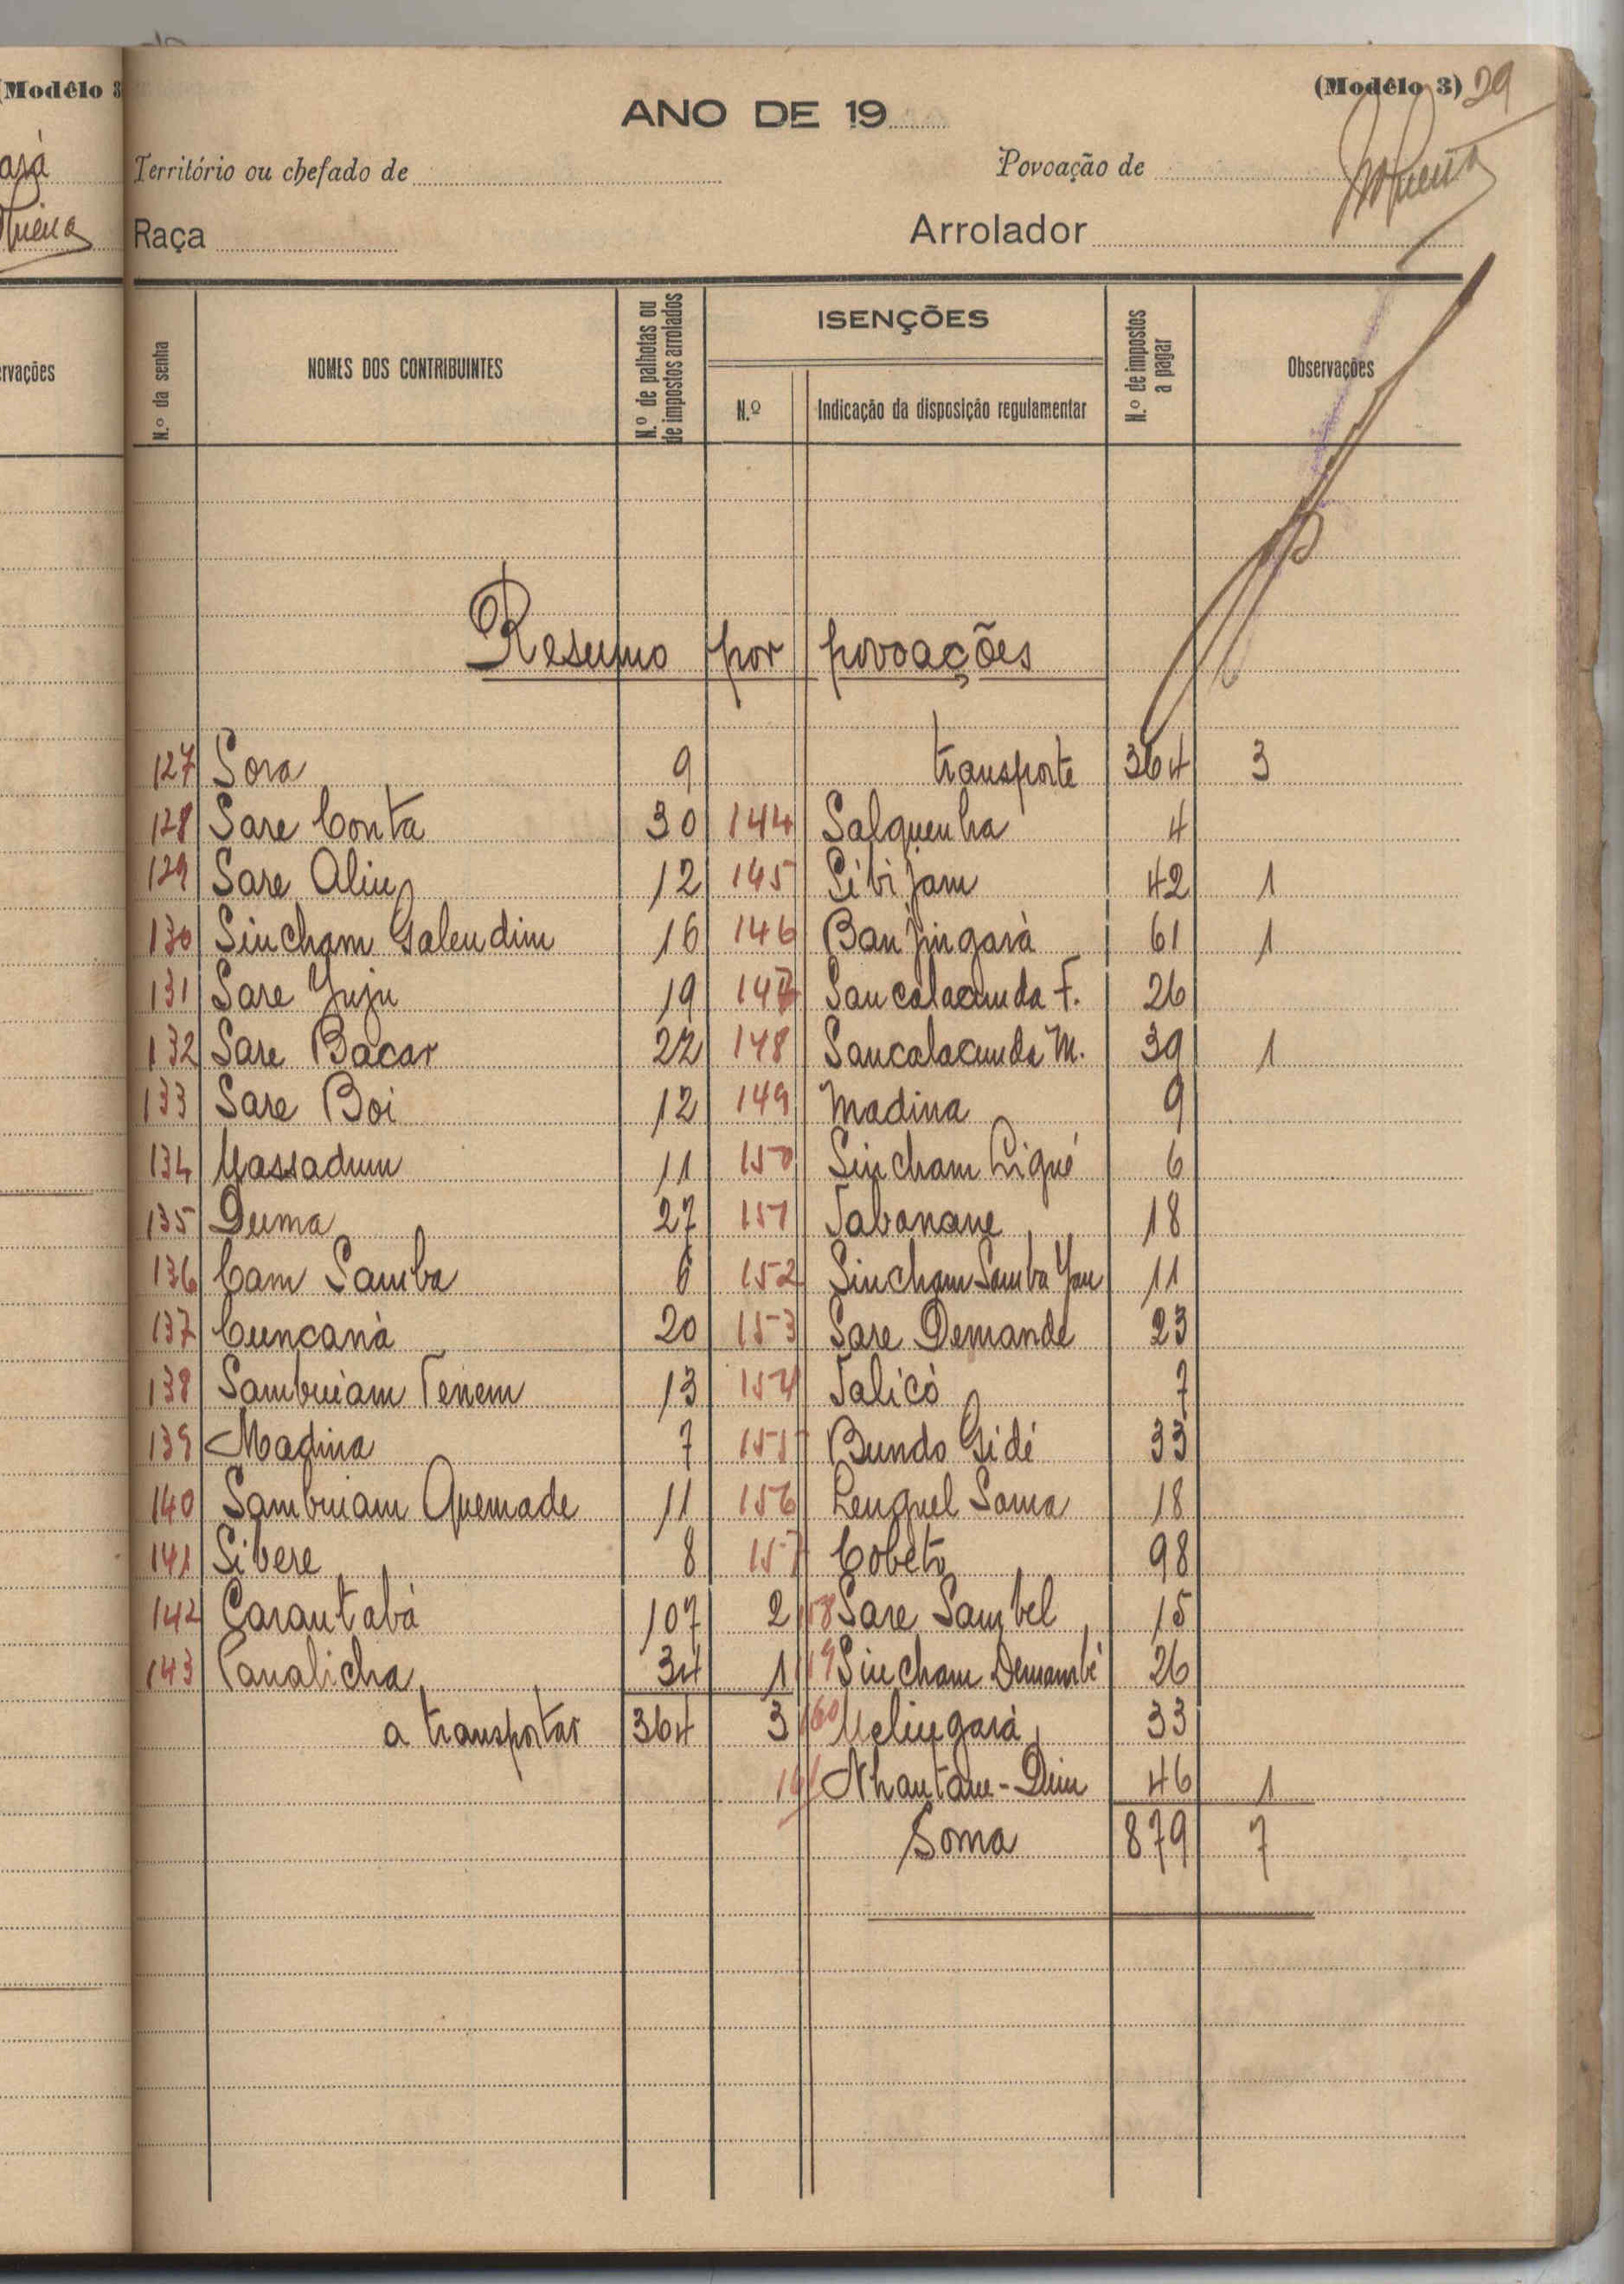 (Modêlo 3
(Modêlo 3) 29
ANO DE 19
Território ou chefado de
Povoação de
Raça
Arrolador
rvações
N.º da senha
NOMES DOS CONTRIBUINTES
N.º de palhotas ou de impostos arrolados
ISENÇÕES
N.º
Indicação da disposição regulamentar
N.º de impostos a pagar
Observações
Resumo por povoações
127 Sora 9 transporte 364 3
128 Sare Conta 30 144 Salquenha 4
129 Sare Aliu 12 145 Sibi jam 42 1
130 Sincham Galendim 16 146 Banjingarà 61 1
131 Sare Juju 19 147 Sancalacunda F. 26
132 Sare Bacar 22 148 Sancalacunda M. 39 1
133 Sare Boi 12 149 Madina 9
134 Massadum 11 150 Sincham Ligué 6
135 Duma 27 151 Tabanane 18
136 Cam Samba 6 152 Sincham Samba Yau 11
137 Cuncanà 20 153 Sare Demande 23
138 Sambuiam Tenem 13 154 Talicò 7
139 Madina 7 155 Bundo Gidé 33
140 Sambuiam Quemade 11 156 Lenquel Soma 18
141 Sibere 8 157 Cobeto 98
142 Carantabà 107 2 158 Sare Sambel 15
143 Canalicha 34 1 159 Sincham Demambé 26
a transportar 364 3 160 Melingarà 33
161 Nhantam-Dim 46 1
Soma 879 7